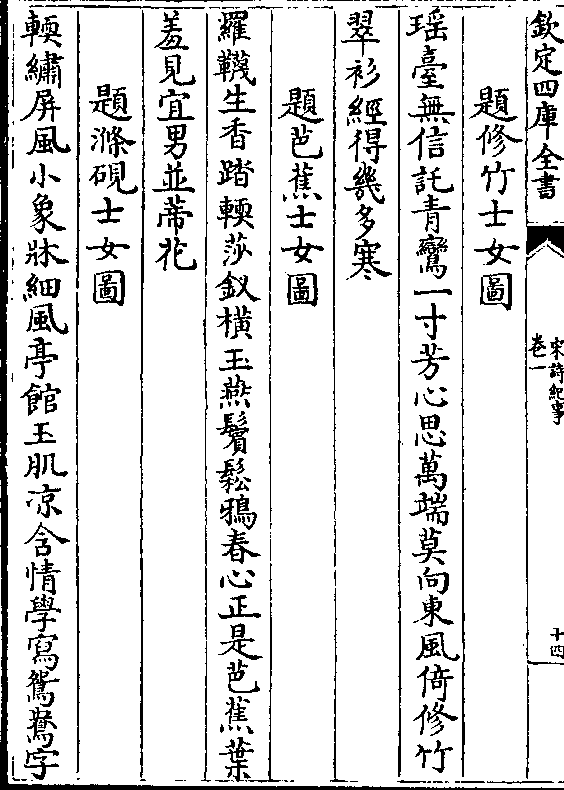 欽定四庫全書
宋詩紀事
卷一
十四
題修竹士女圖
瑶臺無信託青鸞一寸芳心思萬端莫向東風倚修竹
翠衫經得幾多寒
題芭蕉士女圖
羅韈生香踏輭莎釵横玉燕鬢鬆鴉春心正是芭蕉葉
羞見宜男並蒂花
題滌硯士女圖
輭繡屏風小象牀細風亭館玉肌凉含情學寫鴛鴦字